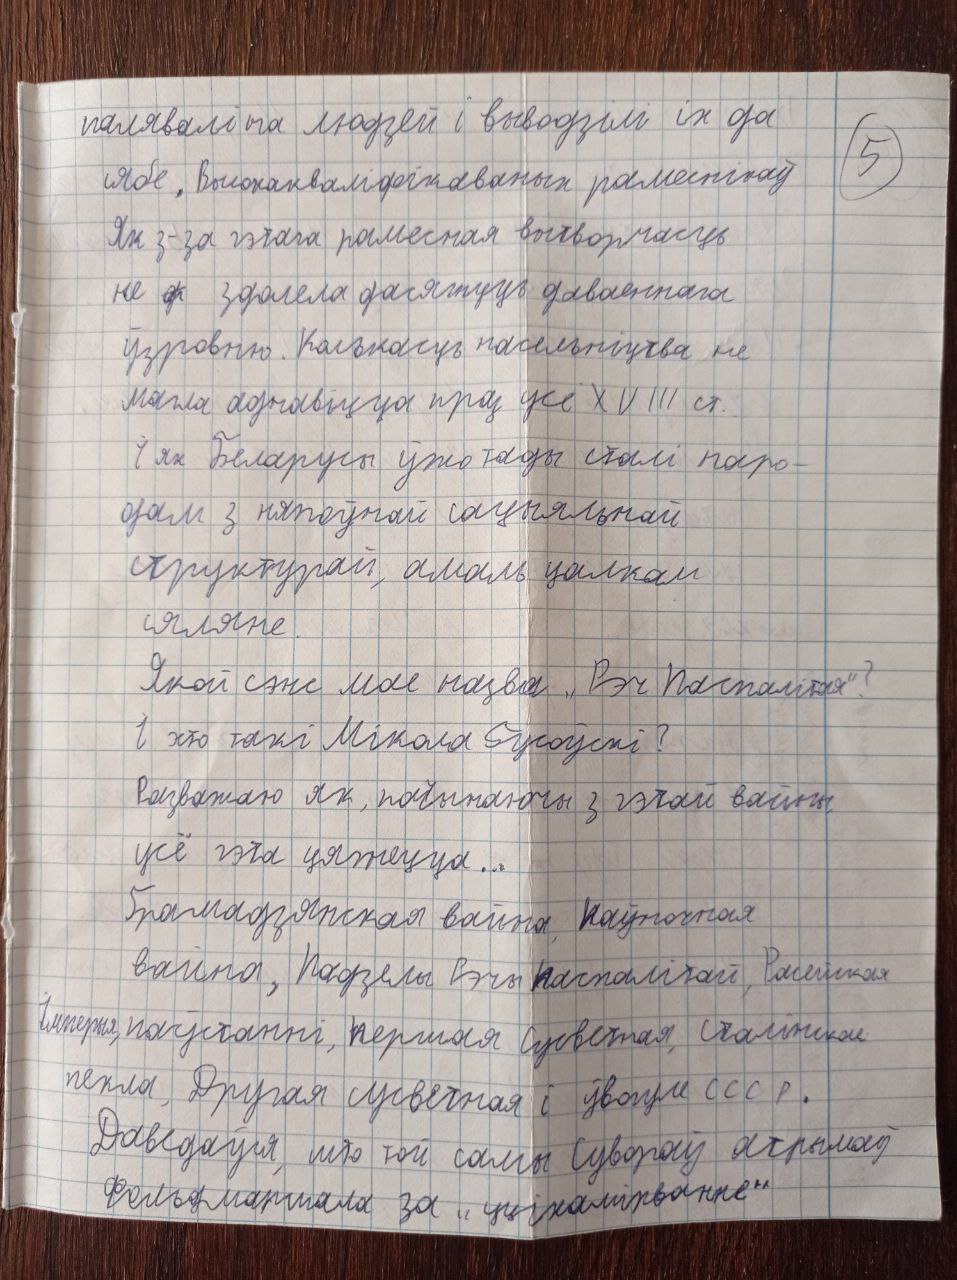 палявалі на людзей і вывадзілі іх да
5
сябе. Высокакваліфікаваных рамеснікаў
Як з-за гэтага рамесная вытворчасць
не здолела дасягнуць даваеннага
ўзроўню. Колькасць насельніцтва не
магла аднавіцца праз усё XVIII ст.
І як Беларусы ўжо тады сталі наро-
дам з няпоўнай сацыяльнай
структурай, амаль цалкам
сяляне.
Якой сэнс мае назва „Рэч Паспалітая"?
І хто такі Мікола Гусоўскі?
Разважаю як, пачынаючы з гэтай вайны
усё гэта цягнецца...
Грамадзянская вайна, Паўночная
вайна, Падзелы Рэчы Паспалітай, Расейская
Імперыя, паўстанні, Першая сусветная, сталінскае
пекла, Другая сусветная і ўвогуле СССР.
Даведаўся, што той самы Сувораў атрымаў
фельдмаршала за „уціхамірванне"